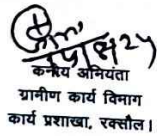 कनीय अभियंता
ग्रामीण कार्य विभाग
कार्य प्रशाखा, रक्सौल।